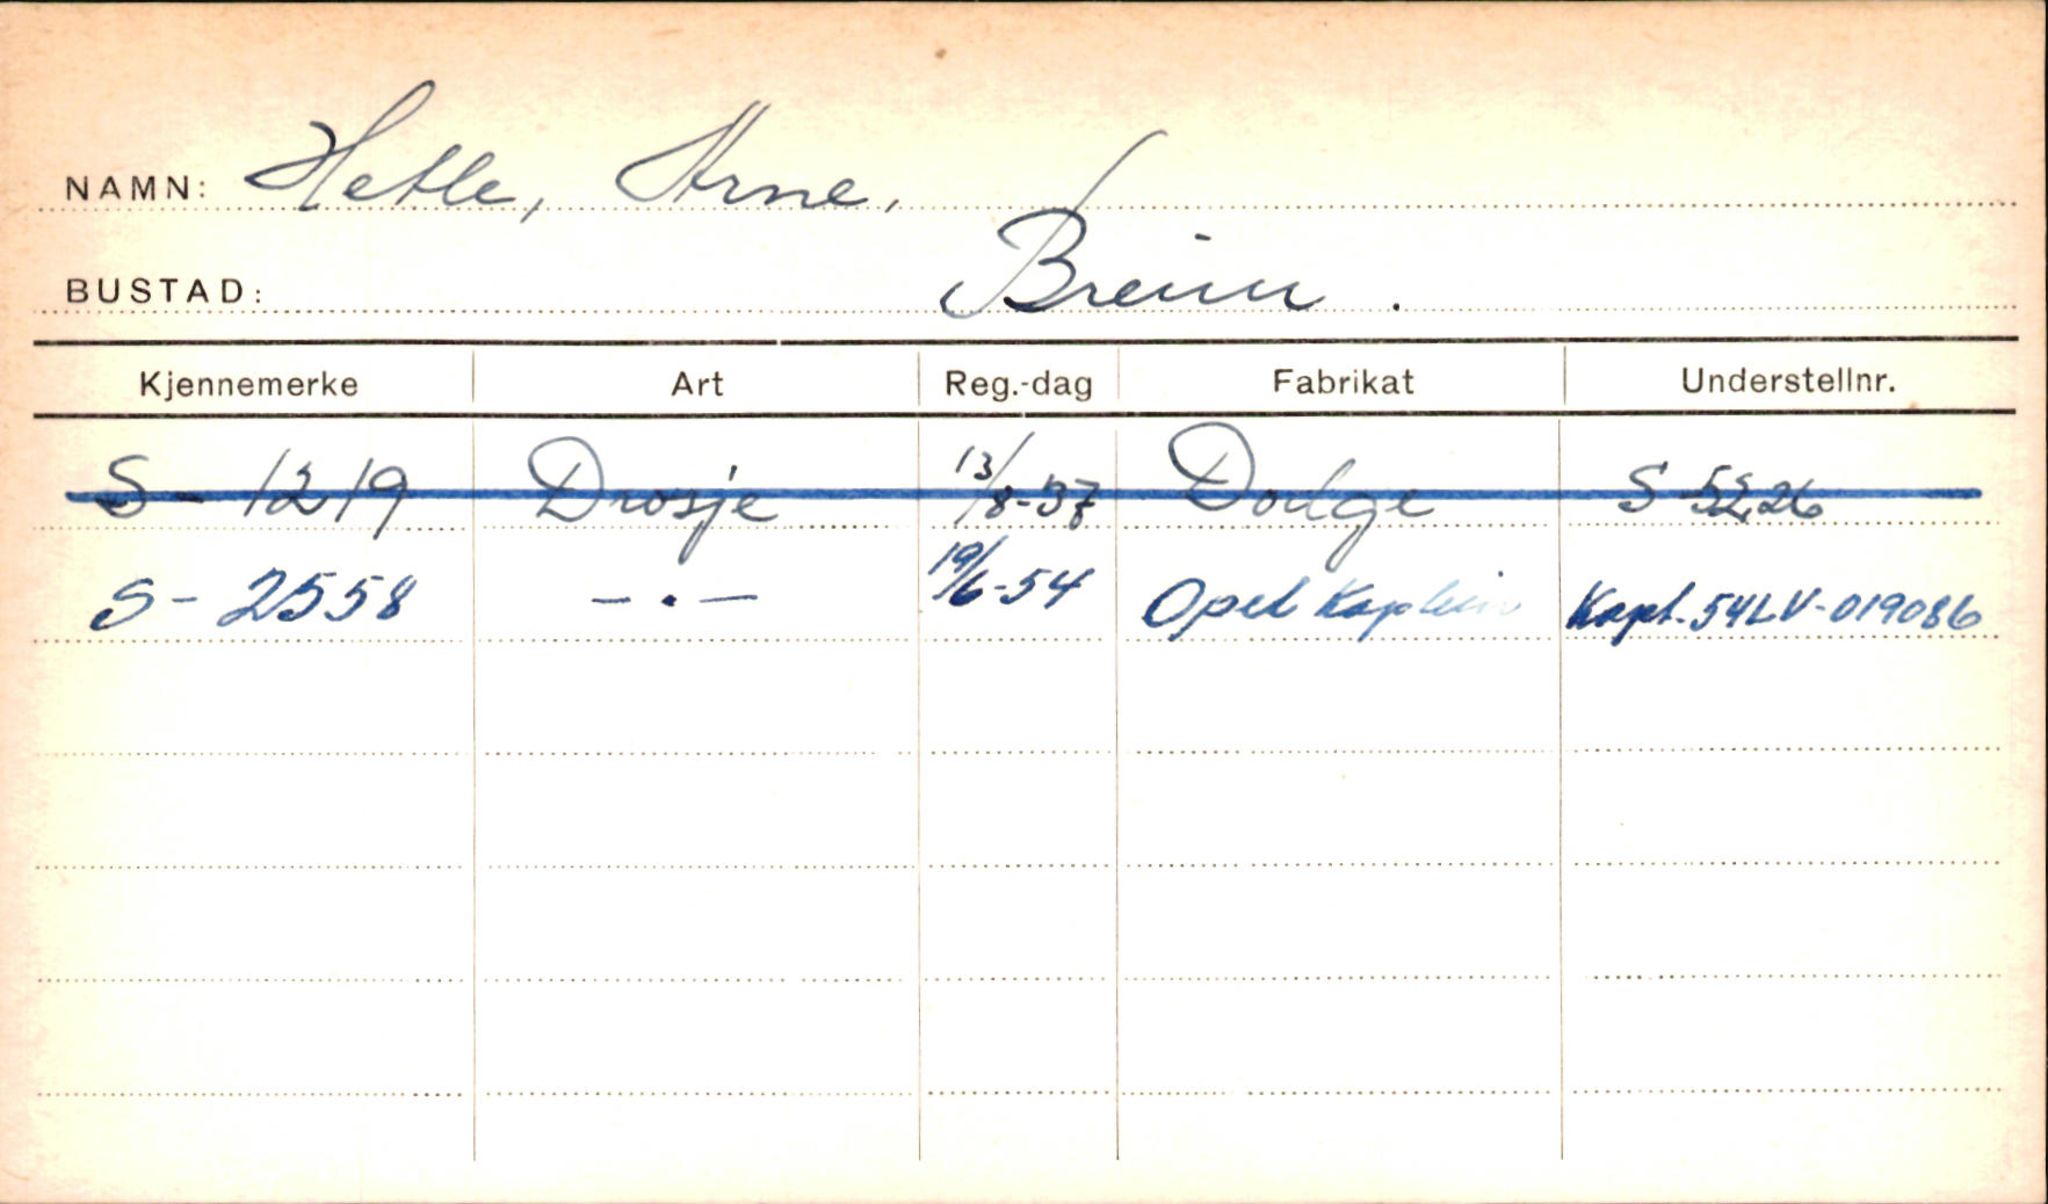 NAMN: Hetle, Arne,
BUSTAD: Breim.
Kjennemerke Art Reg.-dag Fabrikat Understellnr.
S - 1219 Drosje 13/8-37 Dodge
S - 2558 — . — 19/6-54 Opel Kaptein Kapt. 54LV-019086